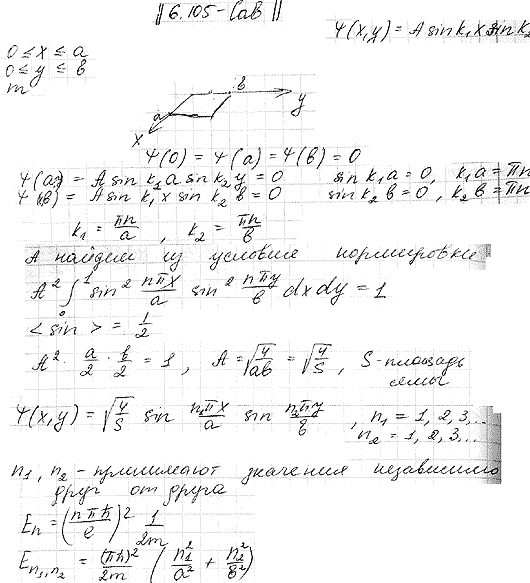 6.105-Сав
Ψ(x,y) = A sin k₁x sin k₂
0 ≤ x ≤ a
0 ≤ y ≤ b
m
a b x y
Ψ(0) = Ψ(a) = Ψ(b) = 0
Ψ(a) = A sin k₁a sin k₂y = 0 sin k₁a = 0, k₁a = πn
Ψ(b) = A sin k₁x sin k₂b = 0 sin k₂b = 0, k₂b = πn
k₁ = πn/a , k₂ = πn/b
A найдем из условие нормировки
A² ∫₀¹ sin² nπx/a sin² nπy/b dxdy = 1
<sin> = 1/2
A² · a/2 · b/2 = 1 , A = √(4/ab) = √(4/S) , S - площадь
ямы
Ψ(x,y) = √(4/S) sin n₁πx/a sin n₂πy/b , n₁ = 1, 2, 3,...
n₂ = 1, 2, 3,...
n₁, n₂ - принимают значения независимо
друг от друга
Eₙ = (nπħ/e)² 1/2m
Eₙ₁,ₙ₂ = (πħ)²/2m (n₁²/a² + n₂²/b²)